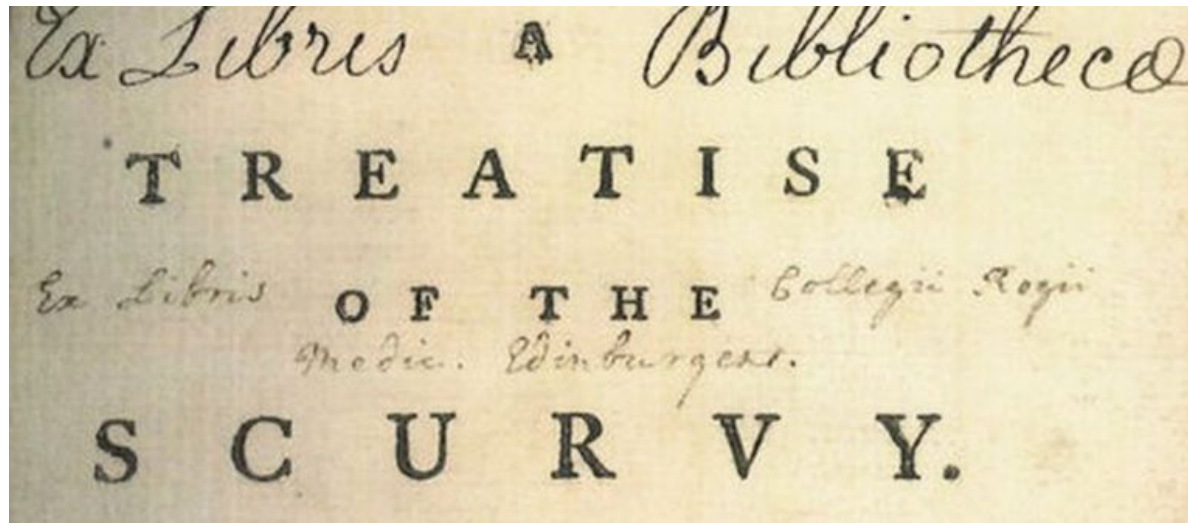 Ex Libris A Bibliotheca
TREATISE
Ex Libris OF THE Collegii Regii
Medic. Edinburgens.
SCURVY.